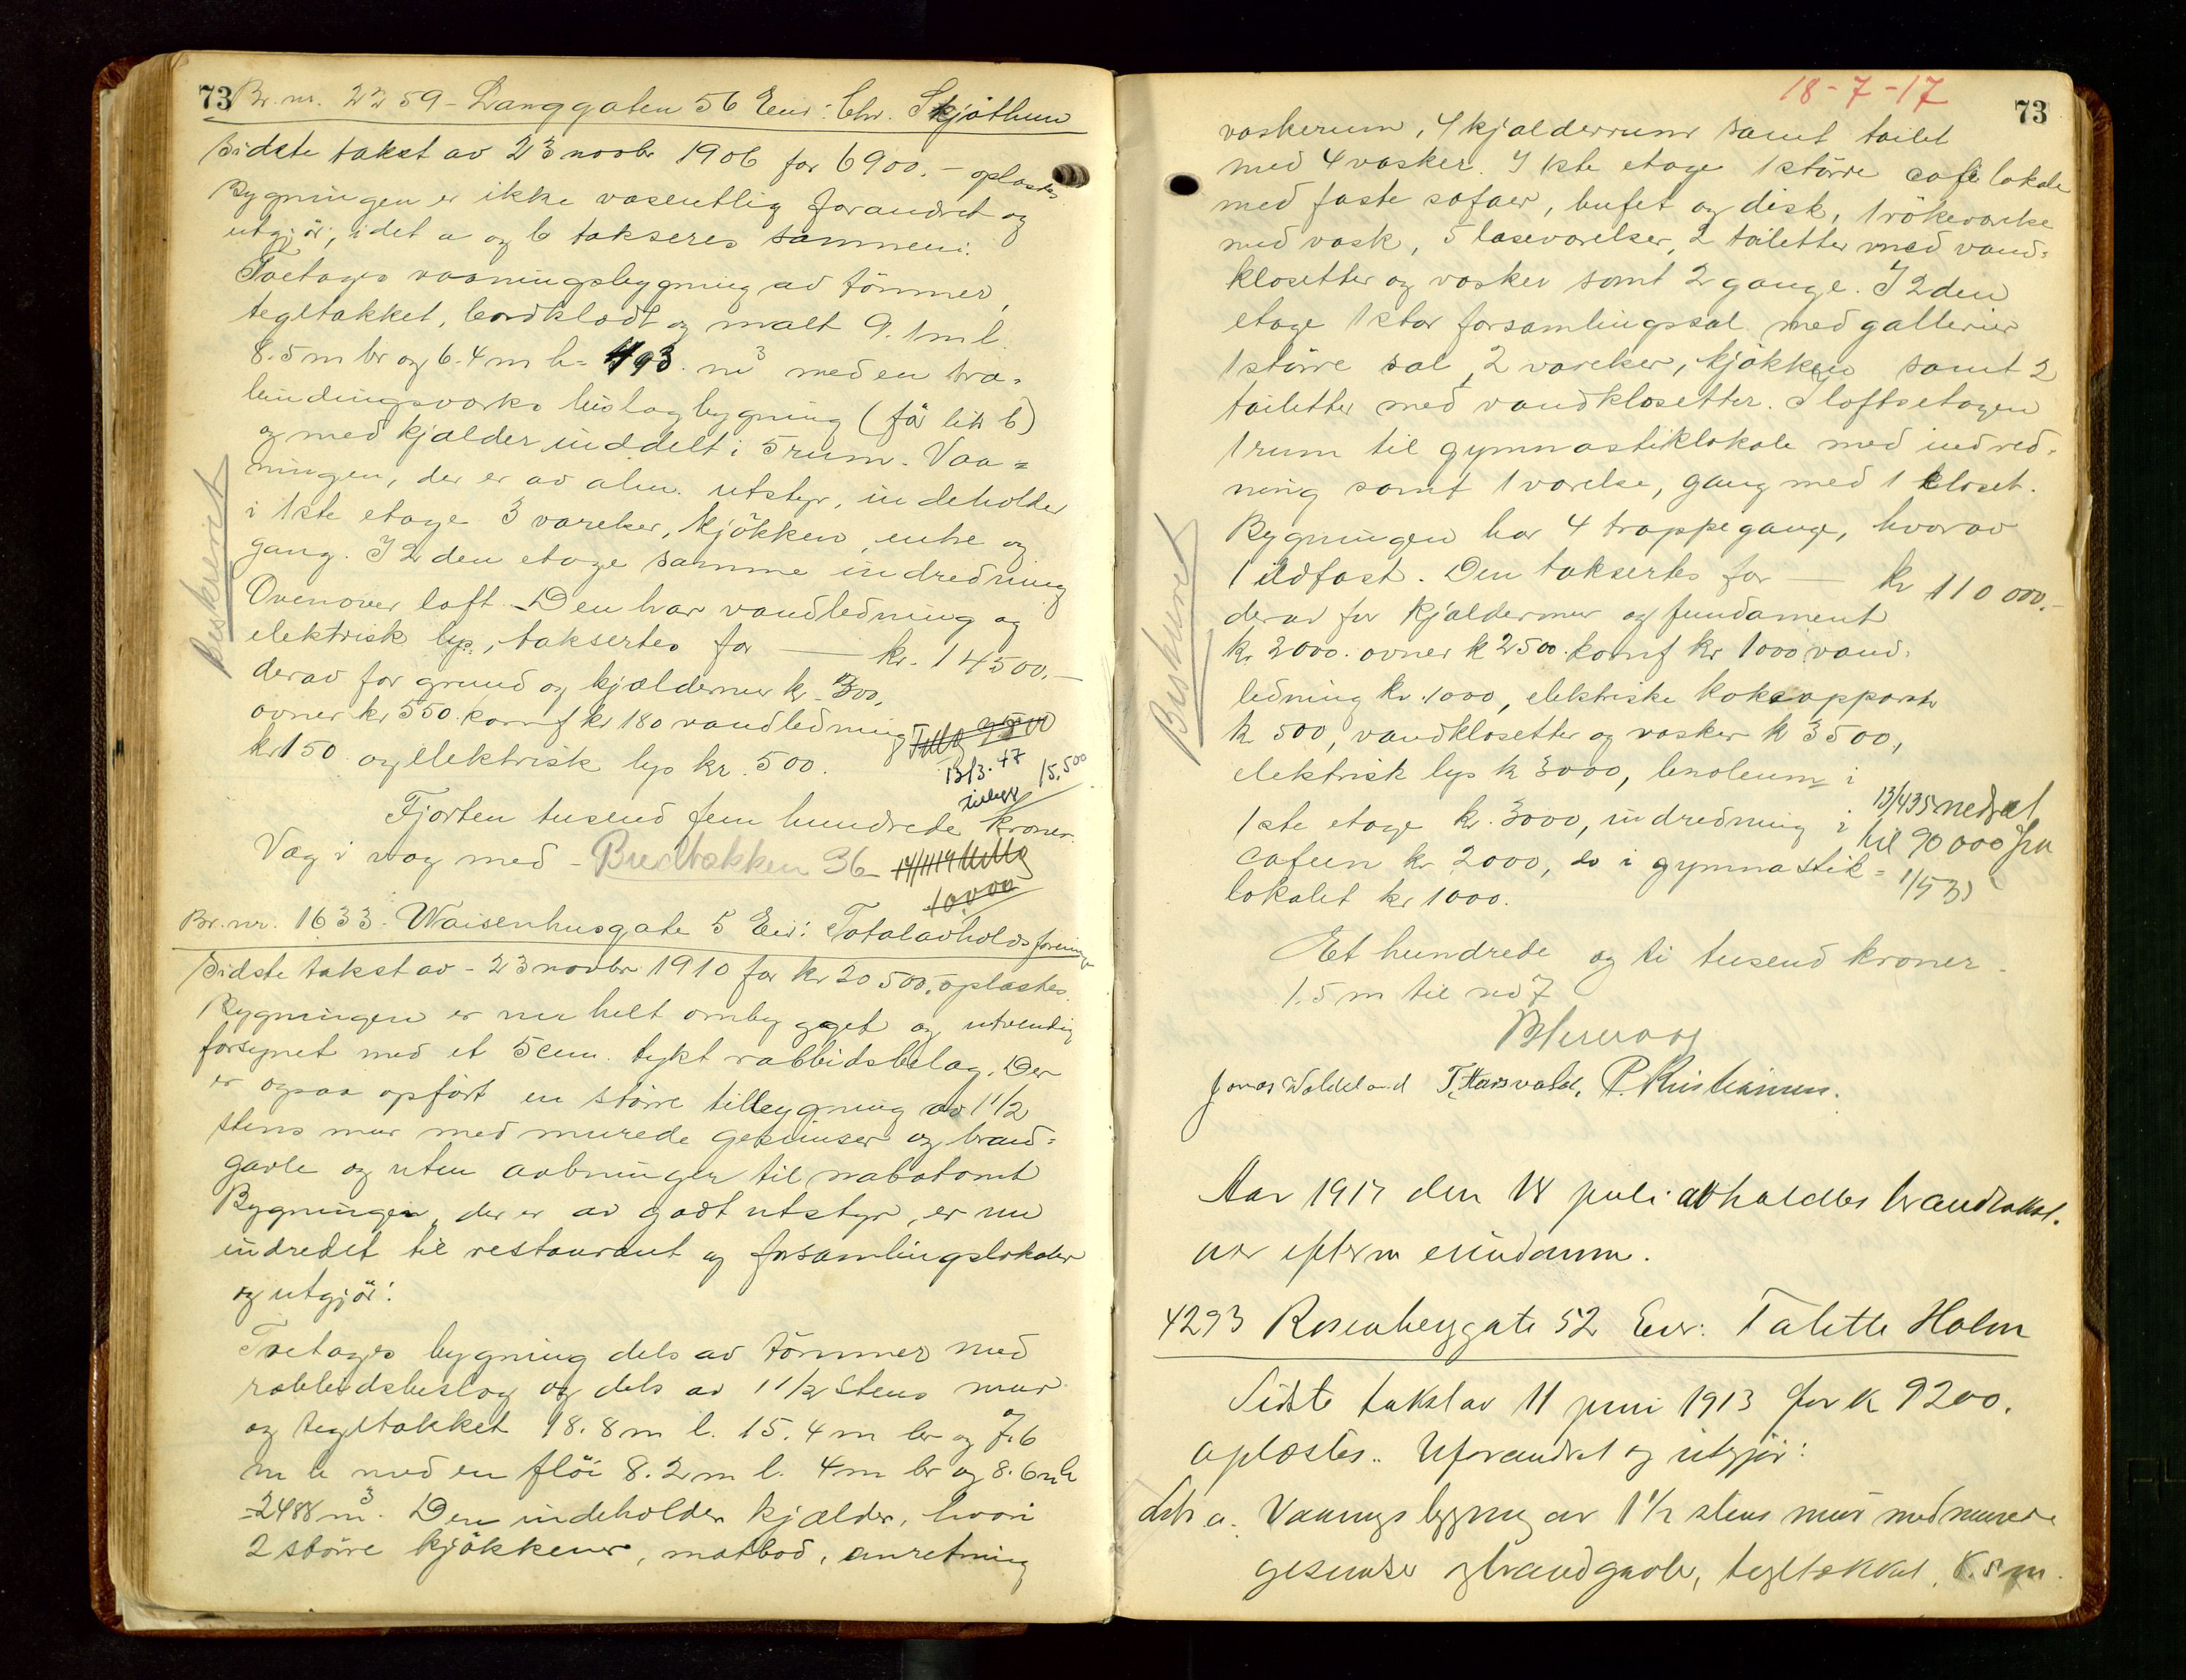 73 Br. nr. 2259 - Langgaten 56 Eier: Chr. Skjöthun
Sidste takst av 23 novbr 1906 for 6900.- oplæstes
Bygningen er ikke væsentlig forandret og
utgjör, idet a og b takseres sammen:
Toetages vaaningsbygning av tömmer,
tegltækket, bordklædt og malt 9.1 m l.
8.5 m br og 6.4 m h = 493 m³ med en tre-
bindingsverks bislagbygning (för litr b)
og med kjælder inddelt i 5 rum. Vaa=
ningen, der er av alm. utstyr, indeholder
i 1ste etage 3 værelser, kjökken, entre og
gang. I 2den etage samme indredning
Ovenover loft. Den har vandledning og
elektrisk lys, taksertes for — kr. 14500.-
derav for grund og kjældermur kr. 300,
ovner kr 550. komf kr 180 vandledning
kr 150 og elektrisk lys kr. 500.
Tillæg 9500
13/3-47
tillegg 15.500
Fjorten tusend fem hundrede kroner.
Væg i væg med - Bredbakken 36
14/11 19 tillæg
10000
Beskrevet
Br. nr. 1633 - Waisenhusgate 5 Eier: Totalavholdsforeningen
Sidste takst av - 23 novbr 1910 for kr 20500.- oplæstes.
Bygningen er nu helt ombygget og utvendig
forsynet med et 5 cm. tykt rabbidsbeslag. Der
er ogsaa opfört en större tilbygning av 1 1/2
stens mur med murede gesimser og brand=
gavle og uten aabninger til nabotomt
Bygningen, der er av godt utstyr, er nu
indredet til restaurant og forsamlingslokaler
og utgjör:
Toetages bygning dels av tömmer med
rabbidsbeslag og dels av 1 1/2 stens mur
og tegltækket 18.8 m l. 15.4 m br og 7.6
m h med en flöi 8.2 m l. 4 m br og 8.6 m h
= 2488 m³. Den indeholder kjælder, hvori
2 större kjökkener, matbod, anretning
18-7-17
73
vaskerum, 4 kjælderrum samt toilet
med 4 vasker. I 1ste etage 1 större cafe lokale
med faste sofaer, bufet og disk, 1 rökeværelse
med vask, 5 loseværelser, 2 toiletter med vand=
klosetter og vasker samt 2 gange. I 2den
etage 1 stor forsamlingssal med gallerier
1 större sal, 2 værelser, kjökken samt 2
toiletter med vandklosetter. I loftsetagen
1 rum til gymnastiklokale med indred-
ning samt 1 værelse, gang med 1 kloset.
Bygningen har 4 trappegange, hvorav
1 ildfast. Den taksertes for — kr 110 000.-
derav for kjældermur og fundament
kr. 2000. ovner kr 2500. komf kr 1000 vand-
ledning kr. 1000, elektriske kokeapparater
kr 500, vandklosetter og vasker kr 3500,
elektrisk lys kr 3000, linoleum i
1ste etage kr. 3000, indredning i
cafeen kr 2000, do i gymnastik=
lokalet kr 1000.
13/4 35 nedsat
til 90 000 fra
1/5 35
Beskrevet
Et hundrede og ti tusend kroner.
1.5 m til no 7
Jonas Waldeland T. Hausvald, P. Kristiansen.
Aar 1917 den 18 juli avholdtes brandtakst.
4293 Rosenberggate 52 Eier: Talette Holm
Sidste takst av 11 juni 1913 for kr 9200.
oplæstes. Uforandret og utgjör:
Litr a. Vaaningsbygning av 1 1/2 stens mur med murede
gesimser og brandgavle, tegltækket, 8.5 m